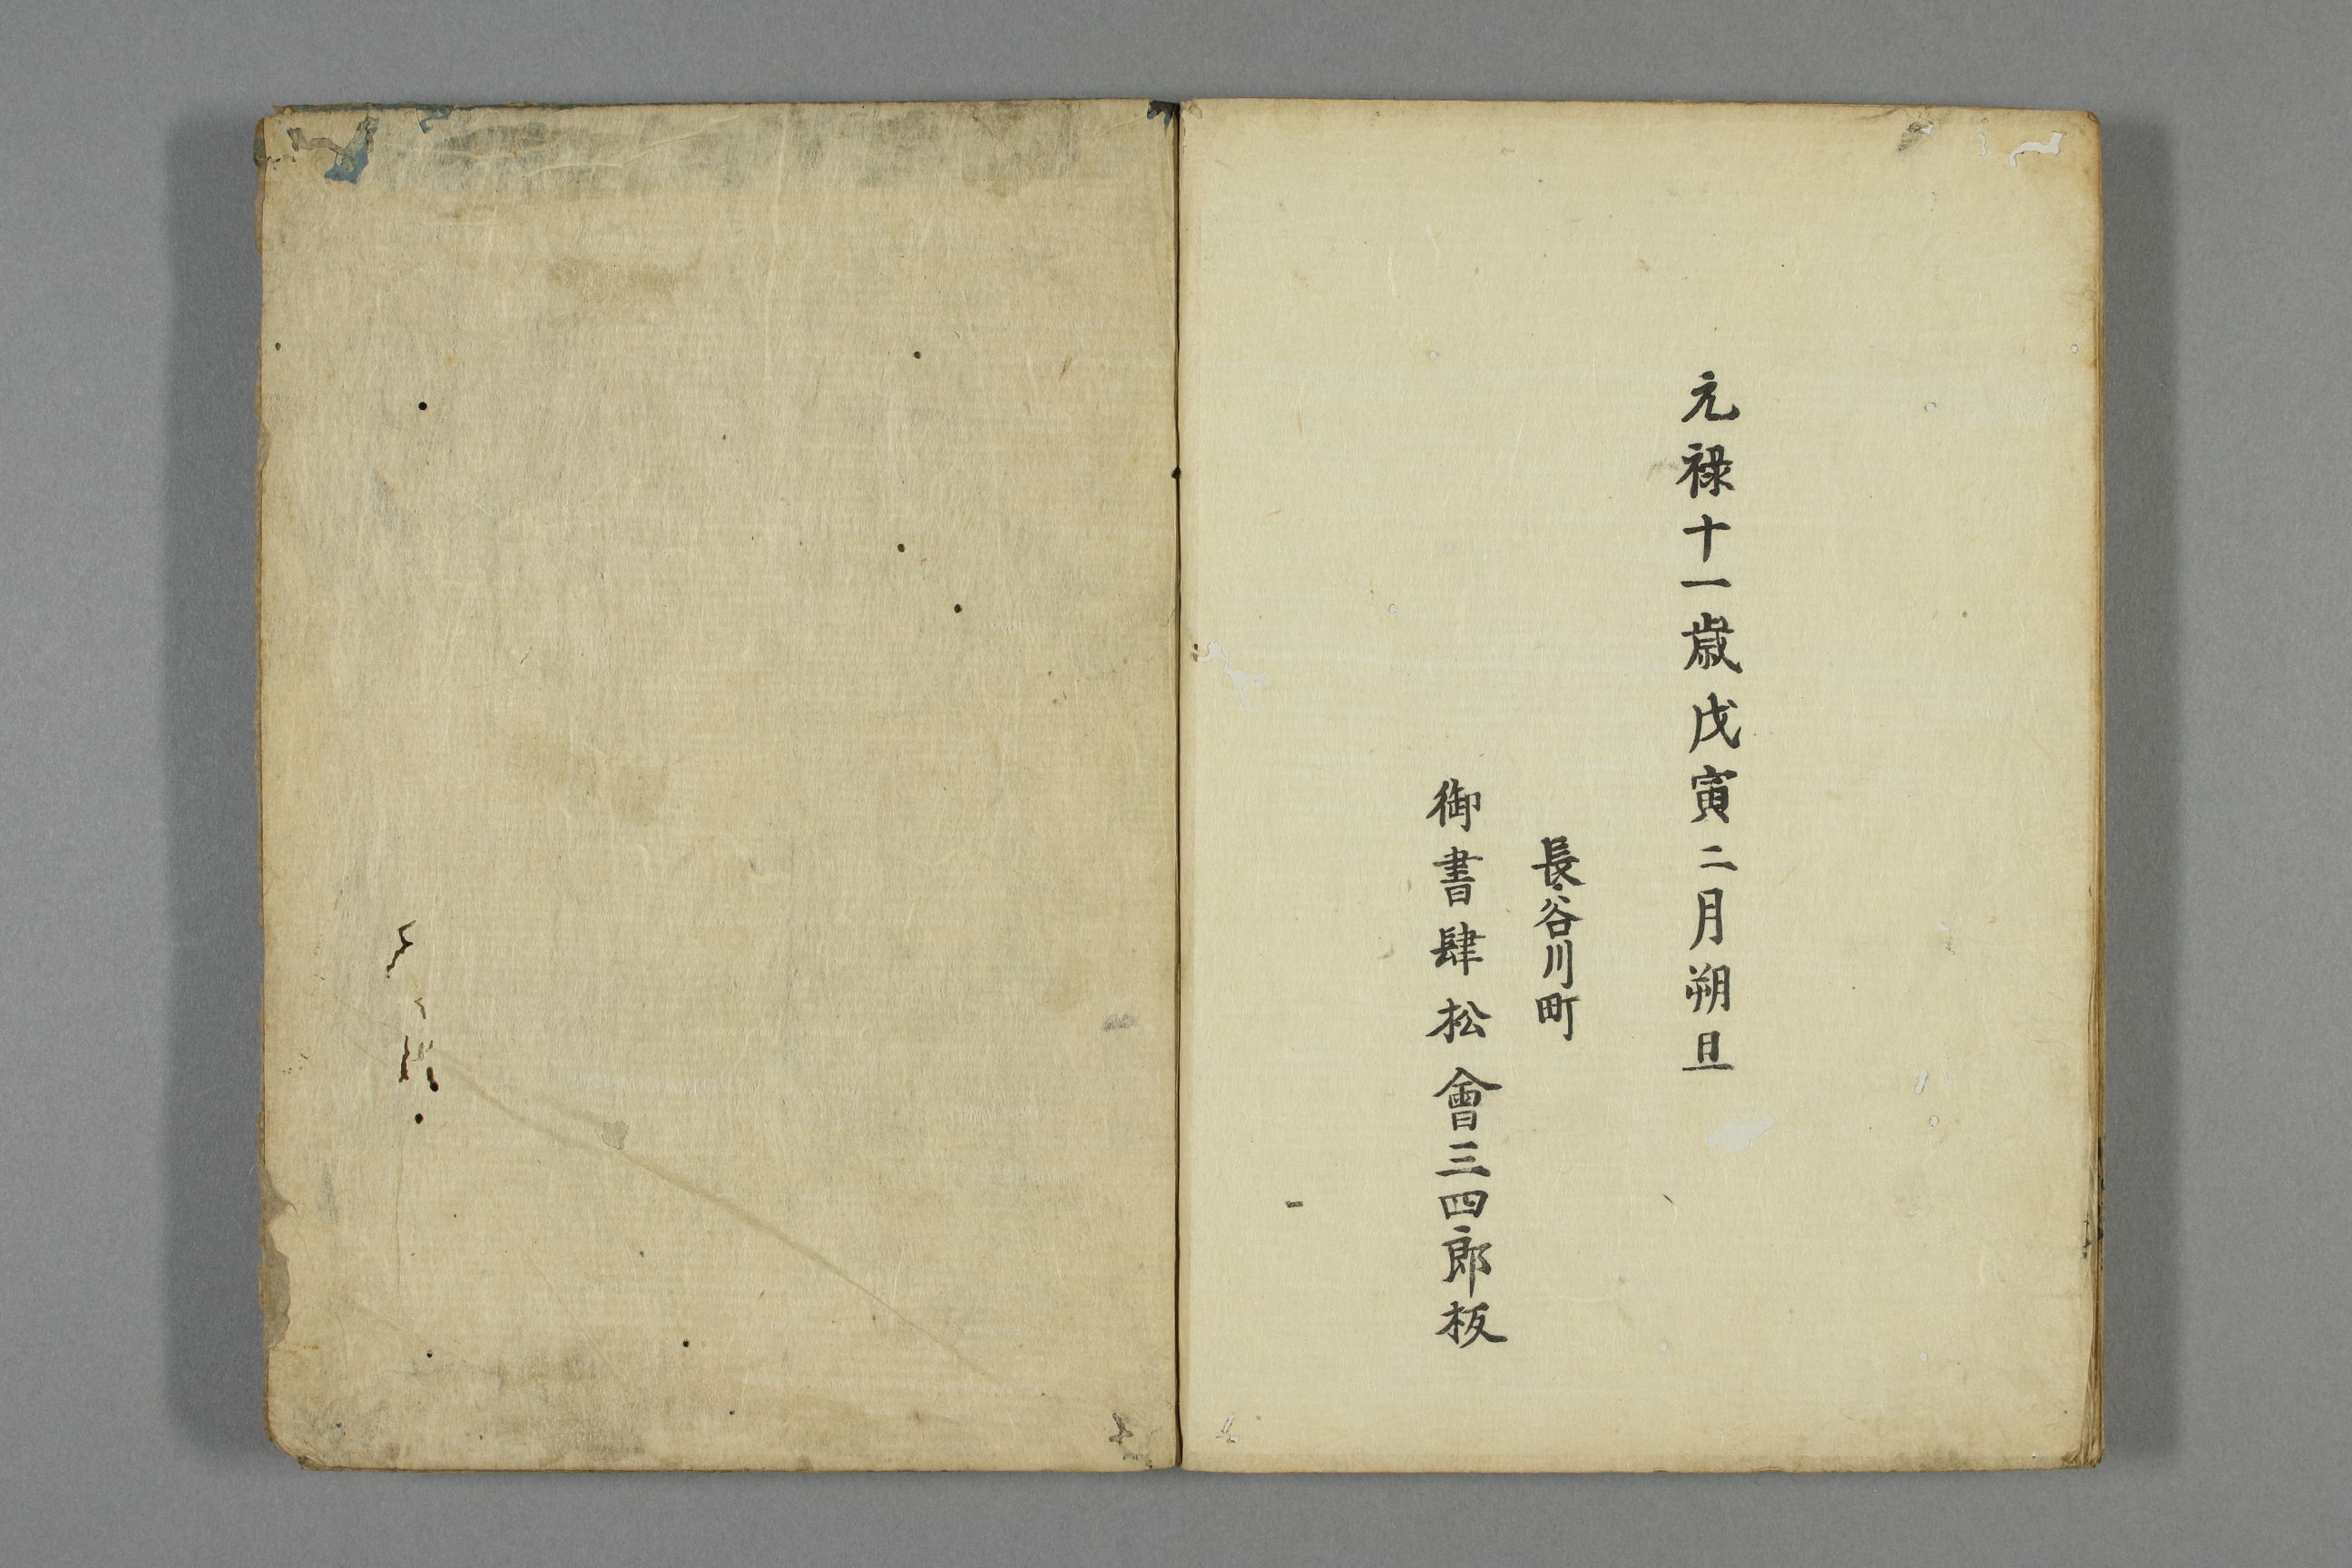 元禄十一歳戊寅二月朔旦
長谷川町
御書肆松會三四郎板